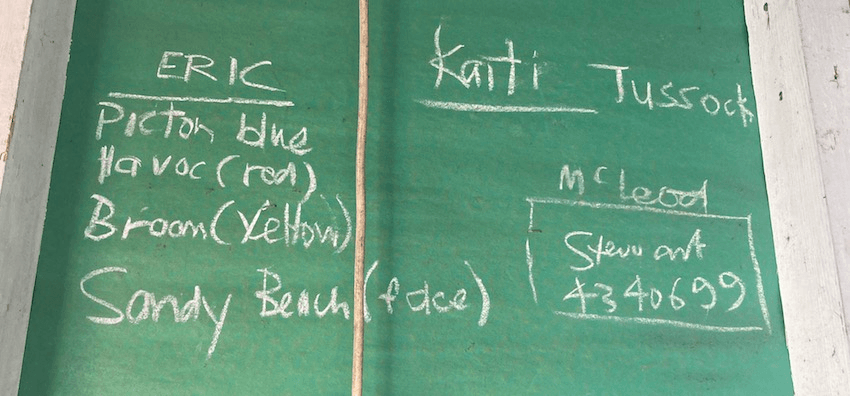 ERIC
Picton blue
Havoc (red)
Broom (Yellow)
Sandy Beach (face)
Kaiti Tussock
McLeod
Stewart
4340699